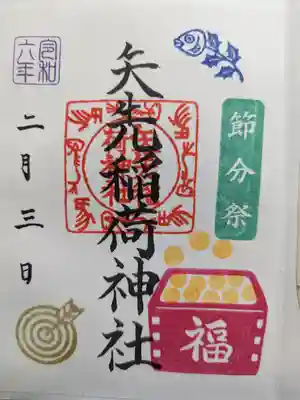 令和
六年
二月三日
矢先稲荷神社
節分祭
福